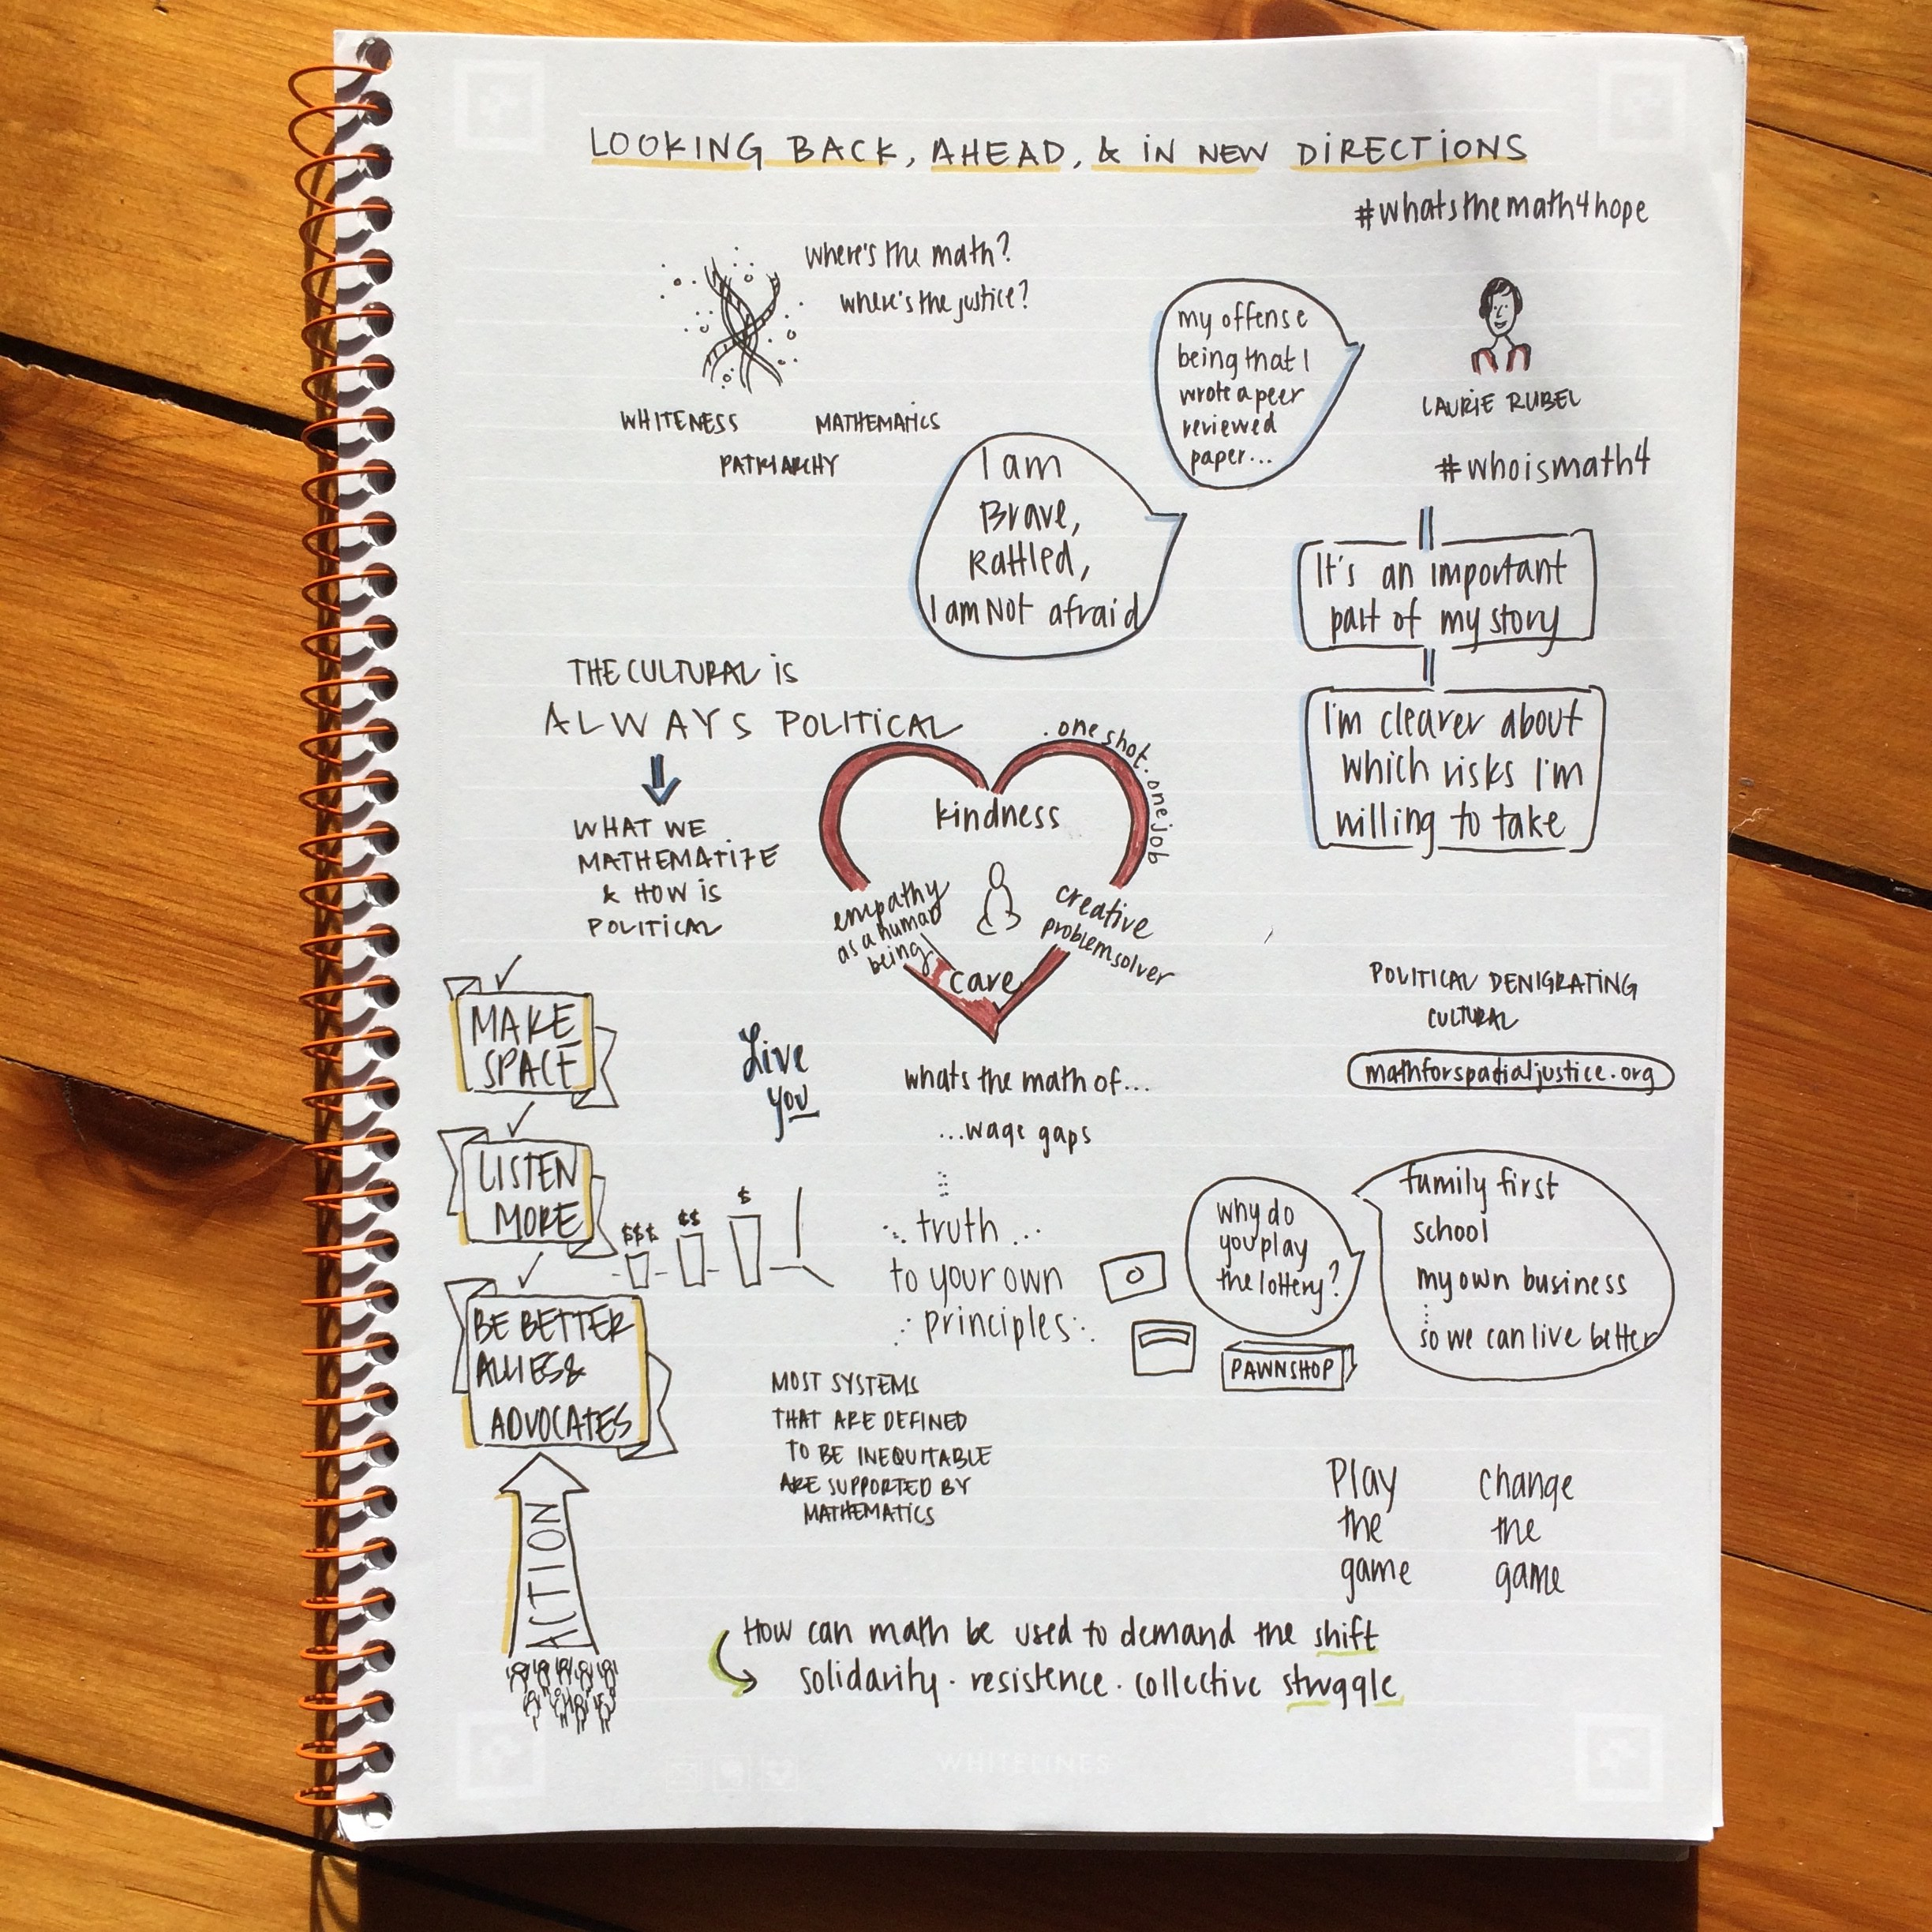 LOOKING BACK, AHEAD, & IN NEW DIRECTIONS
#whatsthemath4hope
where's the math?
where's the justice?
WHITENESS
MATHEMATICS
PATRIARCHY
my offense
being that I
wrote a peer
reviewed
paper...
LAURIE RUBEL
#whoismath4
I am
Brave,
Rattled,
I am Not afraid
It's an important
part of my story
I'm clearer about
which risks I'm
willing to take
THE CULTURAL is
ALWAYS POLITICAL
WHAT WE
MATHEMATIZE
& HOW is
POLITICAL
. one shot. one job
kindness
empathy
as a human
being
creative
problem solver
care
POLITICAL DENIGRATING
CULTURAL
mathforspatialjustice.org
MAKE
SPACE
LISTEN
MORE
BE BETTER
ALLIES &
ADVOCATES
ACTION
Live
you
whats the math of...
...wage gaps
$$$
$$
$
truth
to your own
principles
why do
you play
the lottery?
family first
school
my own business
so we can live better
PAWNSHOP
MOST SYSTEMS
THAT ARE DEFINED
TO BE INEQUITABLE
ARE SUPPORTED BY
MATHEMATICS
Play
the
game
change
the
game
How can math be used to demand the shift
solidarity · resistence · collective struggle
WHITELINES